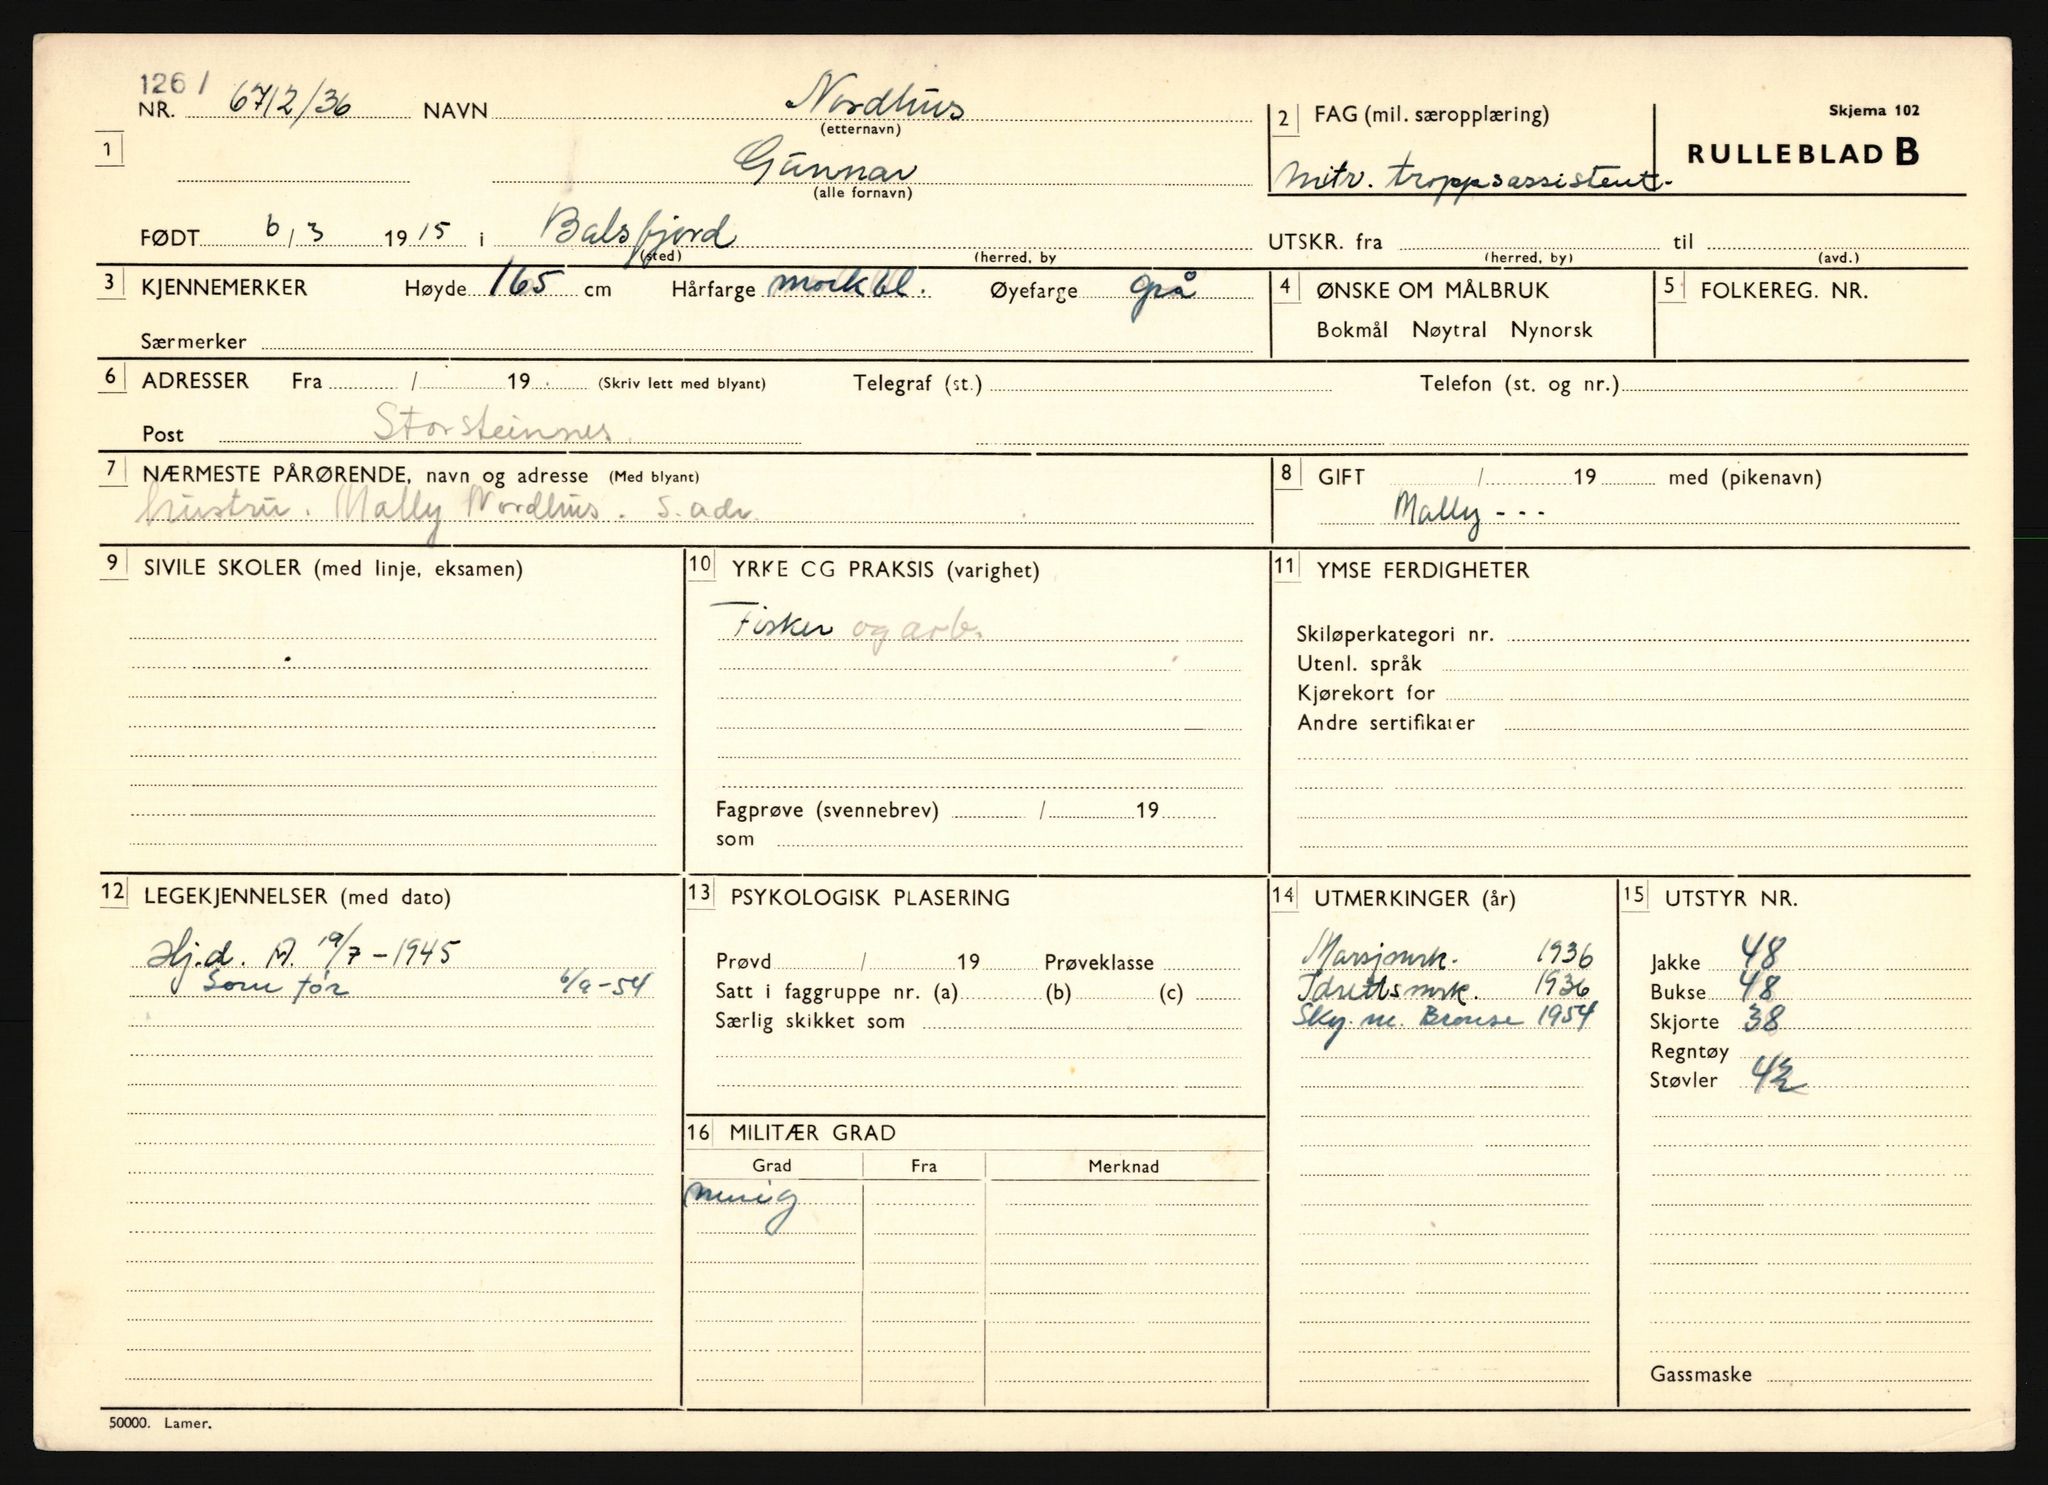 126 /
NR. 6712/36 NAVN Nordhus
(etternavn)
2 FAG (mil. særopplæring)
Skjema 102
RULLEBLAD B
1
Gunnar
(alle fornavn)
Mitr. troppsassistent.
FØDT 6/3 1915 i Balsfjord
(sted) (herred, by
UTSKR. fra til
(herred, by) (avd.)
3 KJENNEMERKER Høyde 165 cm Hårfarge mørkbl. Øyefarge grå
Særmerker
4 ØNSKE OM MÅLBRUK
Bokmål Nøytral Nynorsk
5 FOLKEREG. NR.
6 ADRESSER Fra / 19 (Skriv lett med blyant) Telegraf (st.) Telefon (st. og nr.)
Post Storsteinnes.
7 NÆRMESTE PÅRØRENDE, navn og adresse (Med blyant)
hustru. Mally Nordhus. s. adr.
8 GIFT / 19 med (pikenavn)
Mally - - -
9 SIVILE SKOLER (med linje, eksamen)
10 YRKE CG PRAKSIS (varighet)
Fisker og arb.
Fagprøve (svennebrev) / 19
som
11 YMSE FERDIGHETER
Skiløperkategori nr.
Utenl. språk
Kjørekort for
Andre sertifikater
12 LEGEKJENNELSER (med dato)
Hj.d. A. 19/7-1945
Som før 6/9-54
13 PSYKOLOGISK PLASERING
Prøvd / 19 Prøveklasse
Satt i faggruppe nr. (a) (b) (c)
Særlig skikket som
14 UTMERKINGER (år)
Marsjmrk. 1936
Idrettsmrk. 1936
Sky. m. Bronse 1954
15 UTSTYR NR.
Jakke 48
Bukse 48
Skjorte 38
Regntøy
Støvler 42
Gassmaske
16 MILITÆR GRAD
Grad Fra Merknad
menig
50000. Lamer.